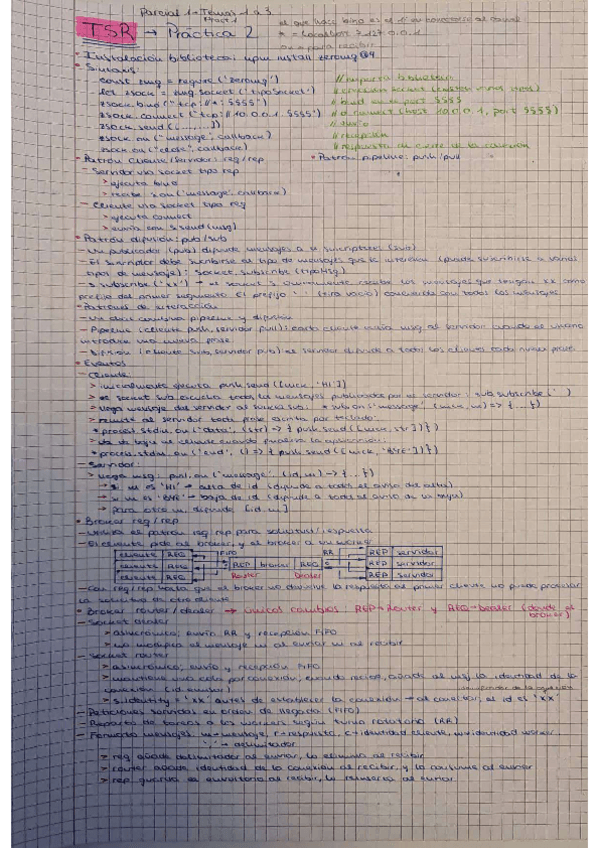 Parcial 1 - Temas 1 a 3
el que hace bind es el 1º en conectarse al canal
TSR → Práctica 2
* = localhost = 127.0.0.1
on = para recibir
• Instalación biblioteca: npm install zeromq@4
• Sintaxis:
const zmq = require('zeromq') // importa biblioteca
let zsock = zmq.socket('tipoSocket')
zsock.bind("tcp://*:5555") // bind en el port 5555
zsock.connect("tcp://10.0.0.1:5555") // connect (host 10.0.0.1, port 5555)
zsock.send([.......]) // envío
zsock.on("message", callback) // recepción
zsock.on("close", callback) // respuesta al cierre de la conexión
• Patrón cliente/servidor: req/rep • Patrón pipeline: push/pull
- Servidor via socket tipo rep
> ejecuta bind
> recibe z.on('message', callback)
- Cliente via socket tipo req
> ejecuta connect
> envía con z.send(msg)
• Patrón difusión: pub/sub
- Un publicador (pub) difunde mensajes a n suscriptores (sub)
- El servidor debe suscribirse al tipo de mensajes que le interesa (puede suscribirse a varios
tipos de mensaje): socket.subscribe(tipoMsg)
- s.subscribe('xx') → el socket s únicamente recibe los mensajes que tengan xx como
prefijo del primer segmento. El prefijo '' (tira vacía) concuerda con todos los mensajes
• Patrones de interacción
- Un chat combina pipeline y difusión
- Pipeline (cliente push, servidor pull): cada cliente envía msg al servidor cuando el usuario
introduce una nueva frase
- Difusión (cliente sub, servidor pub) el servidor difunde a todos los clientes cada nueva frase
• Eventos
- Cliente:
> inicialmente ejecuta push.send([nick, 'HI'])
> el socket sub escucha todos los mensajes publicados por el servidor: sub.subscribe('')
> llega mensaje del servidor al socket sub: * sub.on('message', (nick, m) => {...})
> remite al servidor cada frase escrita por teclado:
* process.stdin.on('data', (str) => { push.send([nick, str]) })
> da de baja al cliente cuando finaliza la aplicación:
* process.stdin.on('end', () => { push.send([nick, 'BYE']) })
- Servidor:
> llega msg: pull.on('message', (id, m) => {...})
→ si m es 'HI' → alta de id (difunde a todos el aviso del alta)
→ si m es 'BYE' → baja de id (difunde a todos el aviso de la baja)
→ para otro m, difunde [id, m]
• Broker req/rep
- Utiliza el patrón req/rep para solicitud/respuesta
- El cliente pide al broker, y el broker a un worker
cliente REQ FIFO RR REP servidor
cliente REQ REP broker REQ REP servidor
cliente REQ Router Dealer REP servidor
- Con req/rep hasta que el broker no devuelve la respuesta al primer cliente no puede procesar
la solicitud de otro cliente
• Broker router/dealer → únicos cambios REP→Router y REQ→Dealer (donde el
broker)
- Socket dealer
> asincrónico; envío RR y recepción FIFO
> no modifica el mensaje ni al enviar ni al recibir
- Socket router
> asincrónico; envío y recepción FIFO
> mantiene una cola por conexión; cuando recibe, añade al msg la identidad de la
conexión (id emisor)
> s.identity = 'xx' antes de establecer la conexión → al conectar, el id es 'xx'
- Peticiones servidas en orden de llegada (FIFO)
- Reparto de tareas a los workers según turno rotatorio (RR)
- Formato mensajes: m=mensaje, r=respuesta, c=identidad cliente, w=identidad worker,
'' = delimitador
> req añade delimitador al enviar, lo elimina al recibir
> router añade identidad de la conexión al recibir, y la consume al enviar
> rep guarda el envoltorio al recibir, lo reinserta al enviar